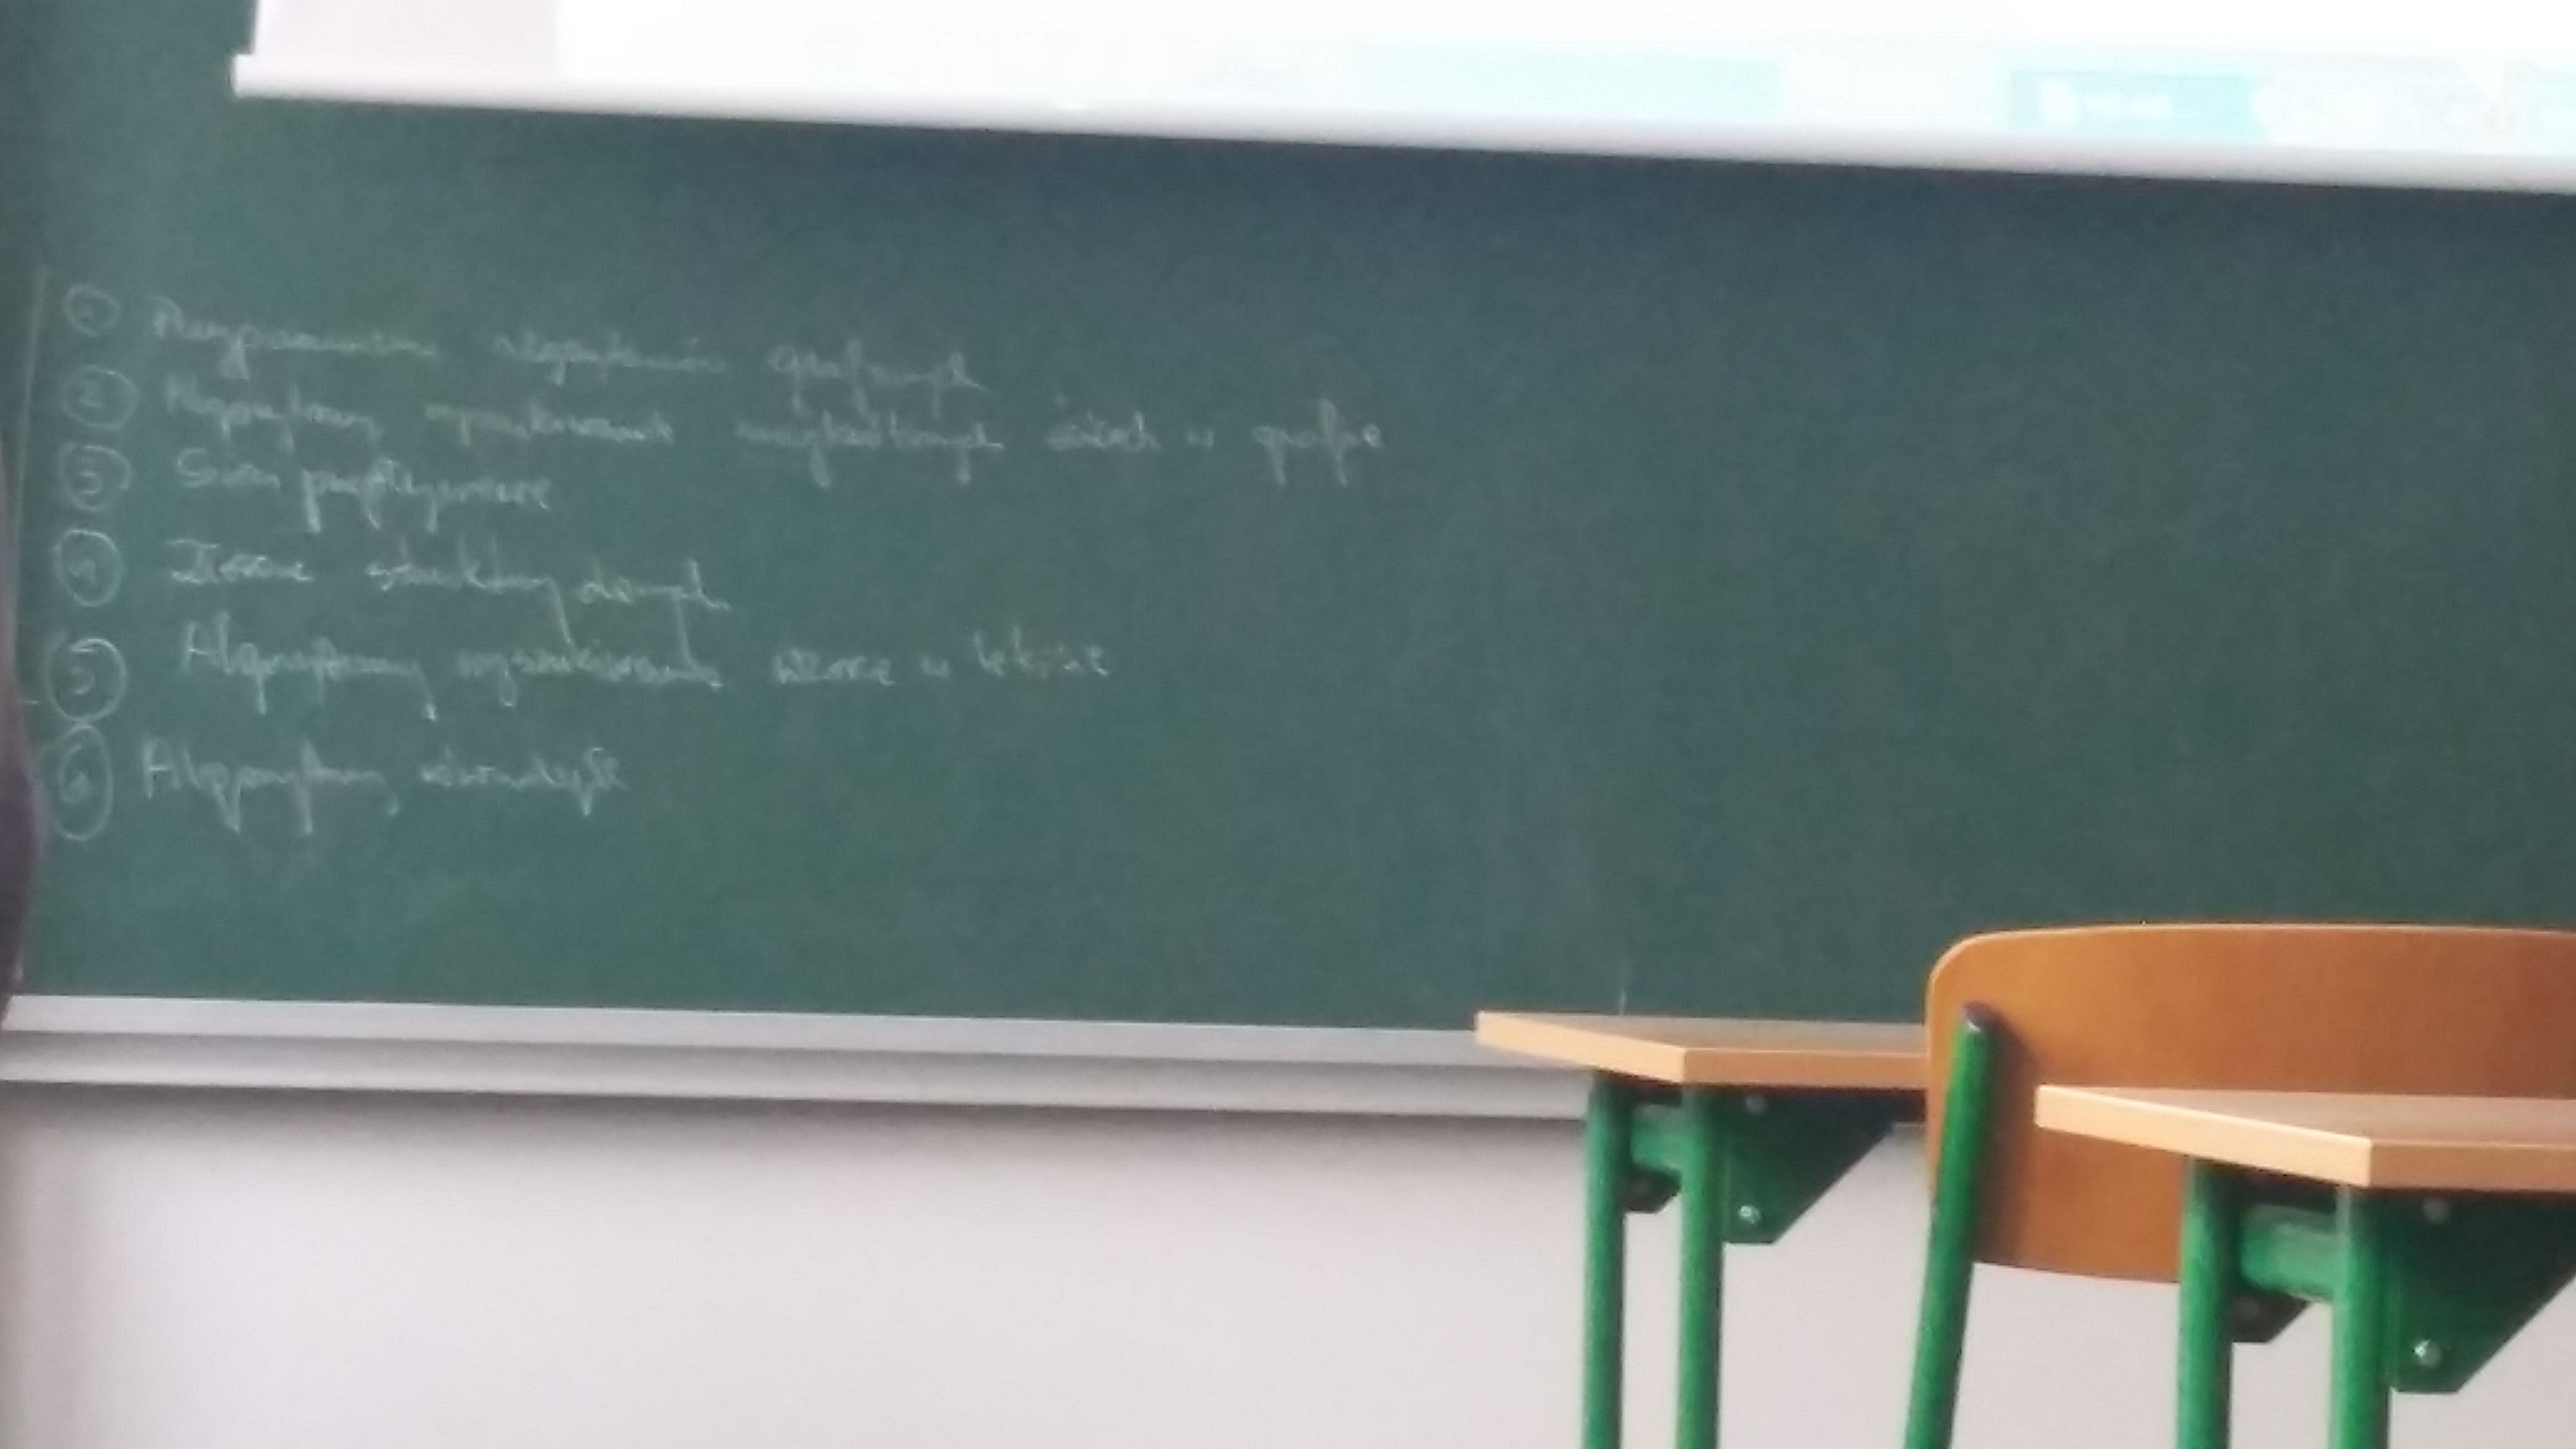 ① Przypomnienie zagadnień grafowych
② Algorytmy wyszukiwania najkrótszych ścieżek w grafie
③ Sieci przepływowe
④ Złożone struktury danych
⑤ Algorytmy wyszukiwania wzorca w tekście
⑥ Algorytmy